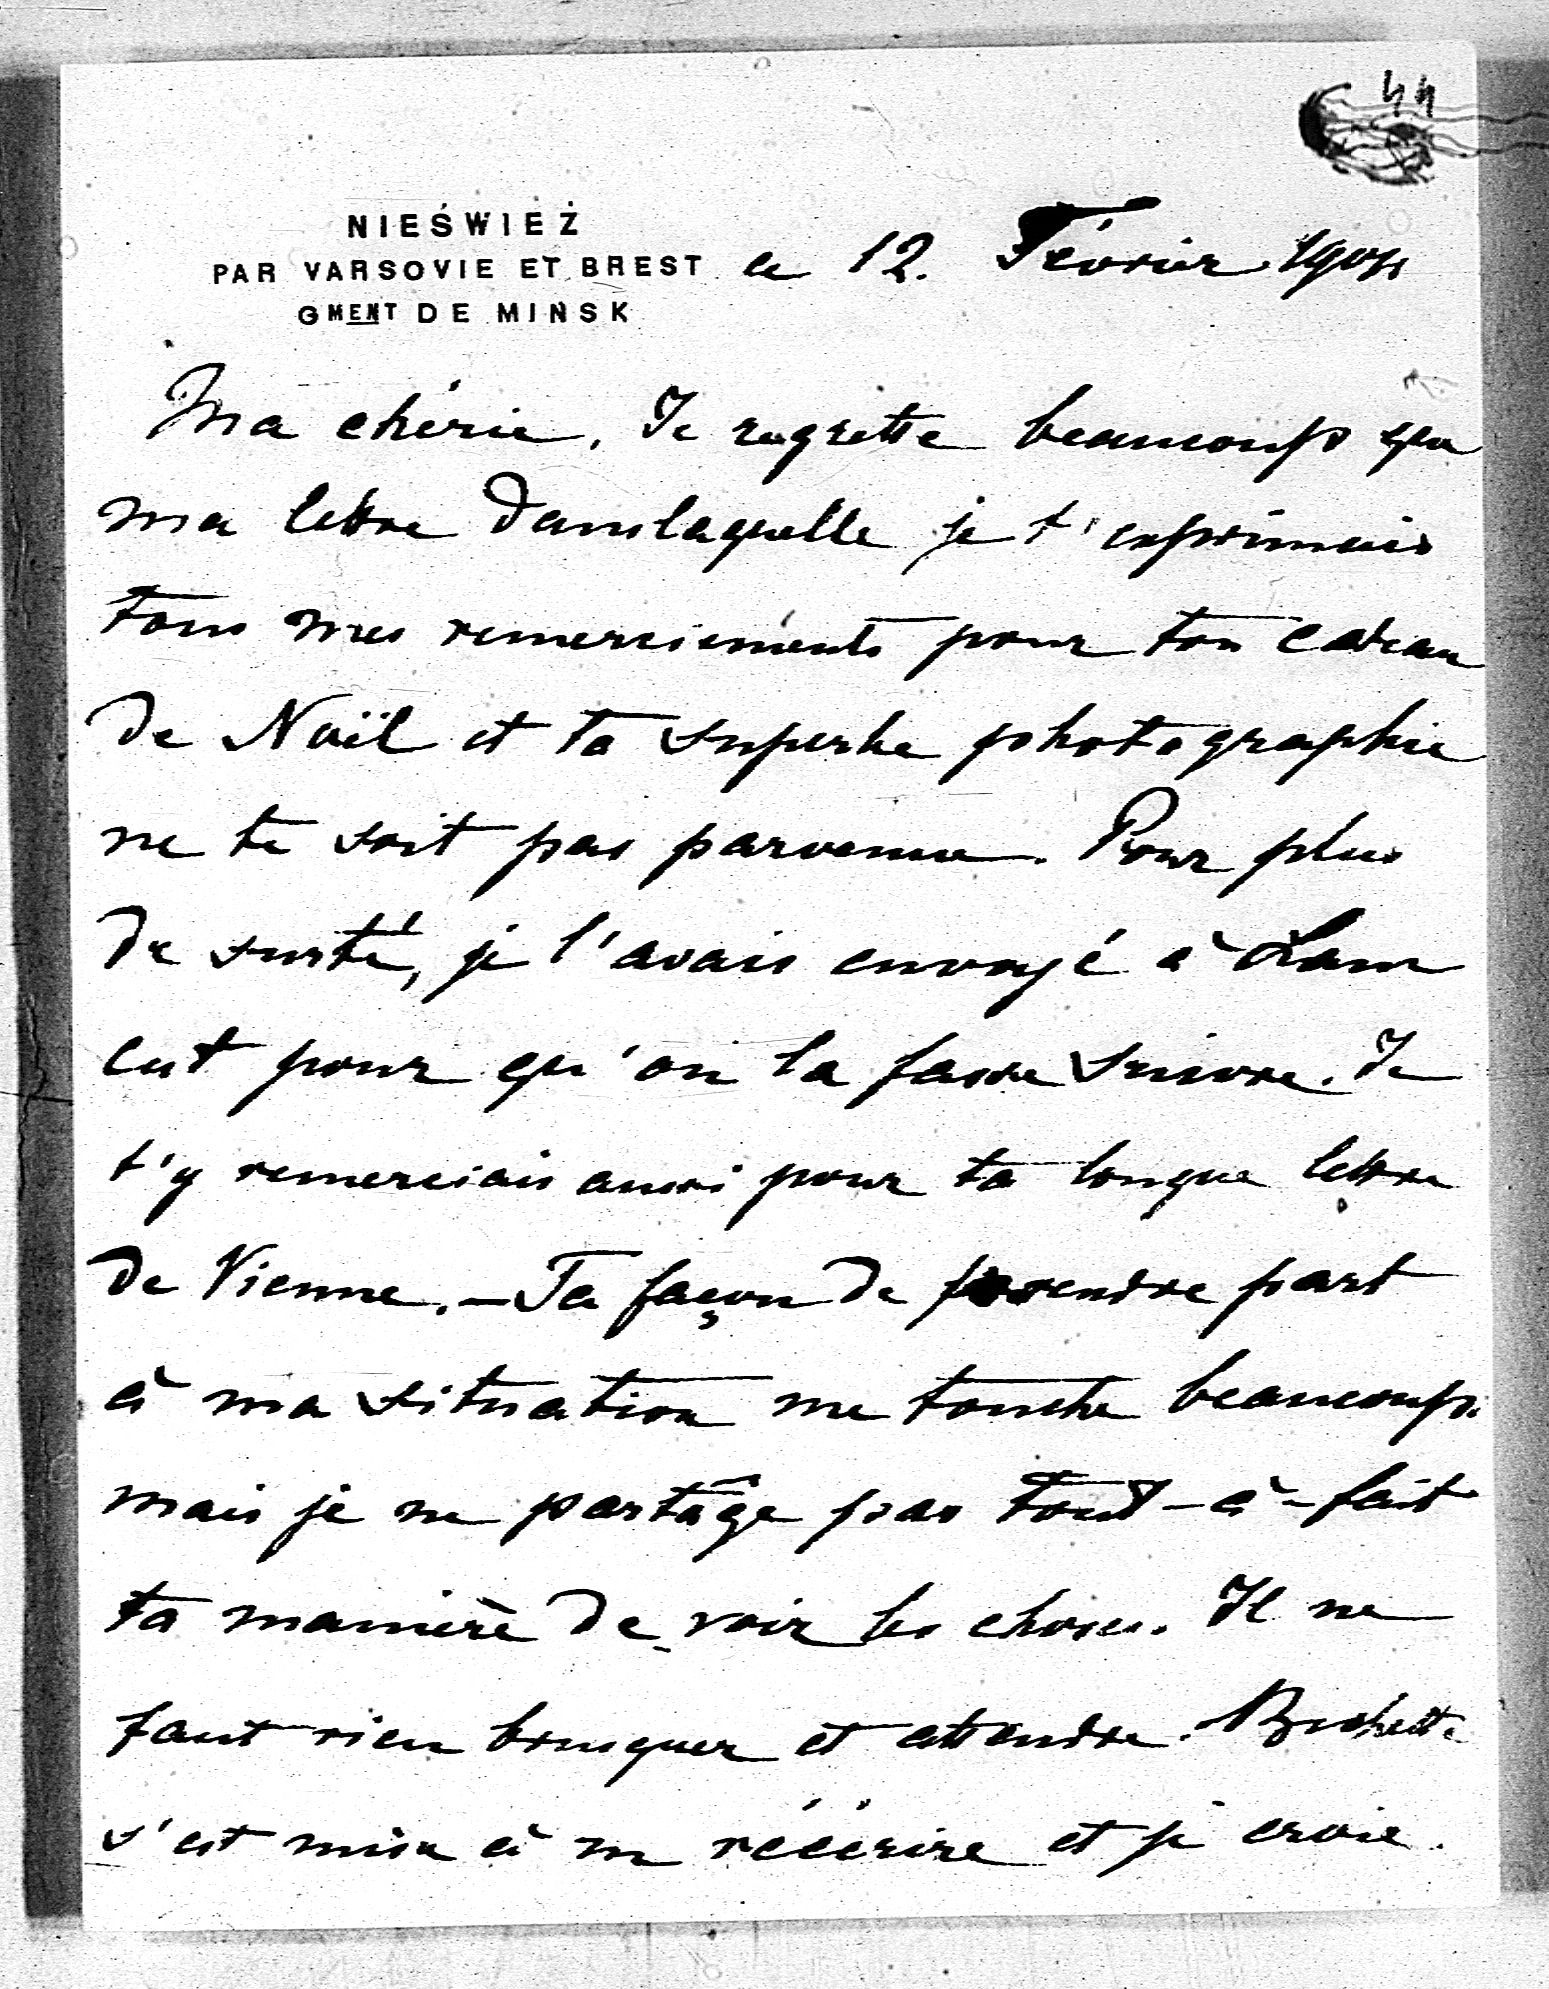 44
NIEŚWIEŻ
PAR VARSOVIE ET BREST
GMENT DE MINSK
ce 12. Février 1904
Ma chérie. Je regrette beaucoup que
ma lettre dans laquelle je t'exprimais
tous mes remerciements pour ton cadeau
de Noël et ta superbe photographie
ne te soit pas parvenue. Pour plus
de surté, je l'avais envoyé à Lan
cut pour qu'on la fasse suivre. Je
t'y remerciais aussi pour ta longue lettre
de Vienne. – Ta façon de prendre part
à ma situation me touche beaucoup.
mais je ne partage pas tout-à-fait
ta manière de voir les choses. Il ne
faut rien brusquer et attendre.
s'est mise à me réécrire et je crois